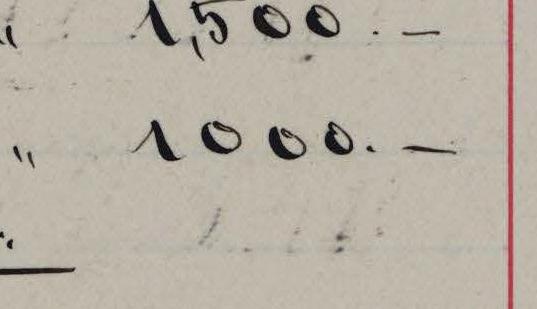 " 1,500.—
" 1000.—